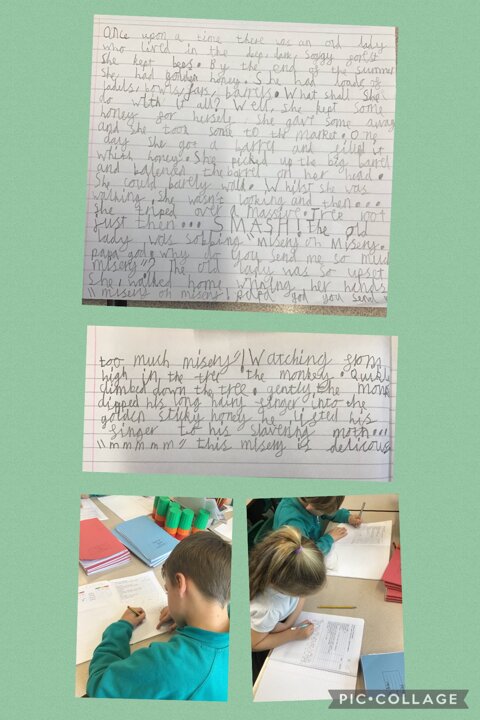 once upon a time there was an old lady
who lived in the deep, dark, soggy forist
She kept bees. By the end of the summer
She had golden honey. She had loads of
ladels, bowls, jars, barrels. What shall she
do with it all? Well, she kept some
honey for herself. She gave some away
and she took some to the market. One
day she got a barrel and filled it
whith honey. She picked up the big barrel
and balenced the barrel on her head.
She could barely walk. Whilst she was
walking she wasn't looking and then...
she triped over a massive tree root
Just then... SMASH! The old
lady was sobbing "misery oh Misery.
papa god. why do you send me so much
misery"? The old lady was so upset
She walked home wringing her hands
"misery oh misery! papa god you send
too much misery"! Watching from
high in the tree the monkey quickly
climbed down the tree. gently the monk
dipped his long hairy finger into the
golden stiky honey he lifted his
finger to his slavering moth...
"mmmmm" this misery is delicous
PIC•COLLAGE